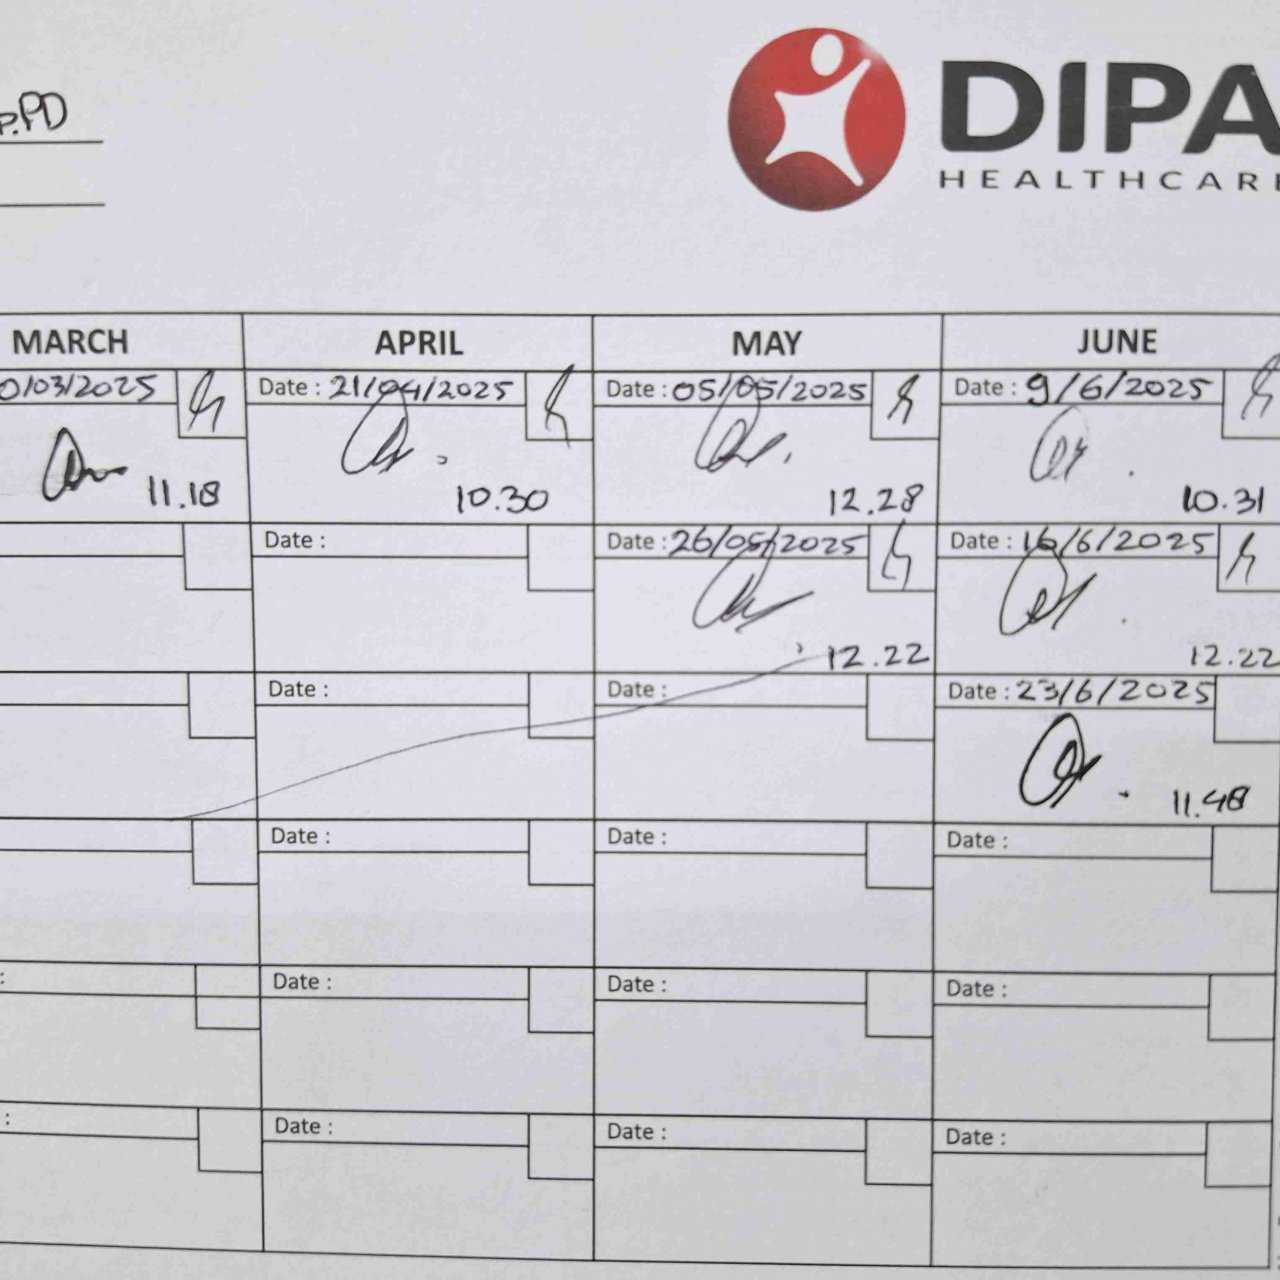 P.PD
DIPA
HEALTHCARE
MARCH APRIL MAY JUNE
0/03/2025 Date : 21/04/2025 Date : 05/05/2025 Date : 9/6/2025
11.18 10.30 12.28 10.31
Date : Date : 26/05/2025 Date : 16/6/2025
12.22 12.22
Date : Date : Date : 23/6/2025
11.48
Date : Date : Date :
: Date : Date : Date :
: Date : Date : Date :